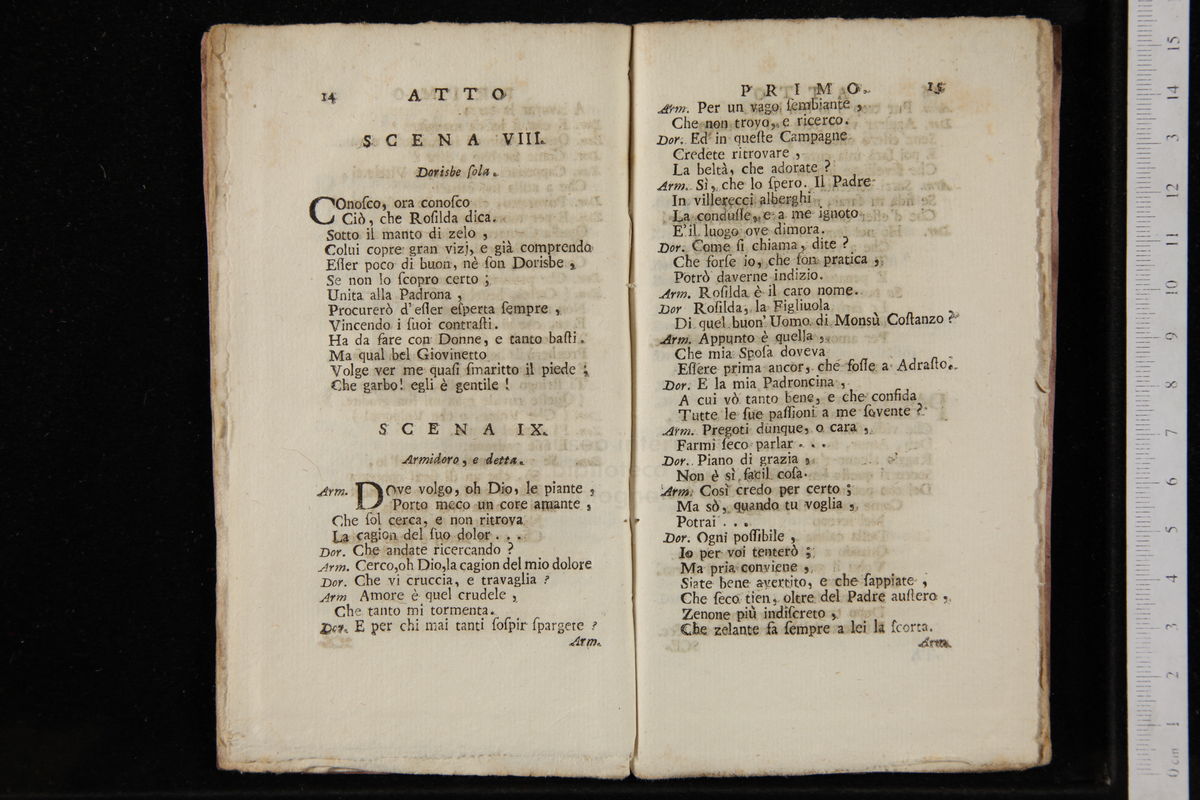 14 ATTO
SCENA VIII.
Dorisbe ſola.
COnoſco, ora conoſco
Ciò, che Roſilda dica.
Sotto il manto di zelo ,
Colui copre gran vizj, e già comprendo
Eſſer poco di buon, nè ſon Dorisbe ,
Se non lo ſcopro certo ;
Unita alla Padrona ,
Procurerò d'eſſer eſperta ſempre ,
Vincendo i ſuoi contraſti.
Ha da fare con Donne, e tanto baſti.
Ma qual bel Giovinetto
Volge ver me quaſi ſmaritto il piede ;
Che garbo! egli è gentile !
SCENA IX.
Armidoro, e detta.
Arm. DOve volgo, oh Dio, le piante ,
Porto meco un core amante ,
Che ſol cerca, e non ritrova
La cagion del ſuo dolor . . .
Dor. Che andate ricercando ?
Arm. Cerco,oh Dio,la cagion del mio dolore
Dor. Che vi cruccia, e travaglia ?
Arm Amore è quel crudele ,
Che tanto mi tormenta.
Dor. E per chi mai tanti ſoſpir ſpargete ?
Arm.
PRIMO. 15
Arm. Per un vago ſembiante ,
Che non trovo, e ricerco.
Dor. Ed in queſte Campagne
Credete ritrovare ,
La beltà, che adorate ?
Arm. Sì, che lo ſpero. Il Padre
In villerecci alberghi
La conduſſe, e a me ignoto
E'il luogo ove dimora.
Dor. Come ſi chiama, dite ?
Che forſe io, che ſon pratica ,
Potrò daverne indizio.
Arm. Roſilda è il caro nome.
Dor Roſilda, la Figliuola
Di quel buon' Uomo di Monsù Coſtanzo ?
Arm. Appunto è quella ,
Che mia Spoſa doveva
Eſſere prima ancor, che foſſe a Adraſto.
Dor. E la mia Padroncina ,
A cui vò tanto bene, e che confida
Tutte le ſue paſſioni a me ſovente ?
Arm. Pregoti dunque, o cara ,
Farmi ſeco parlar . . .
Dor. Piano di grazia ,
Non è sì facil coſa.
Arm. Così credo per certo ;
Ma sò, quando tu voglia ,
Potrai . . .
Dor. Ogni poſſibile ,
Io per voi tenterò ;
Ma pria conviene ,
Siate bene avertito, e che ſappiate ,
Che ſeco tien, oltre del Padre auſtero ,
Zenone più indiſcreto ,
Che zelante fa ſempre a lei la ſcorta.
Arm.
15
14
13
12
11
10
9
8
7
6
5
4
3
2
1
0 cm